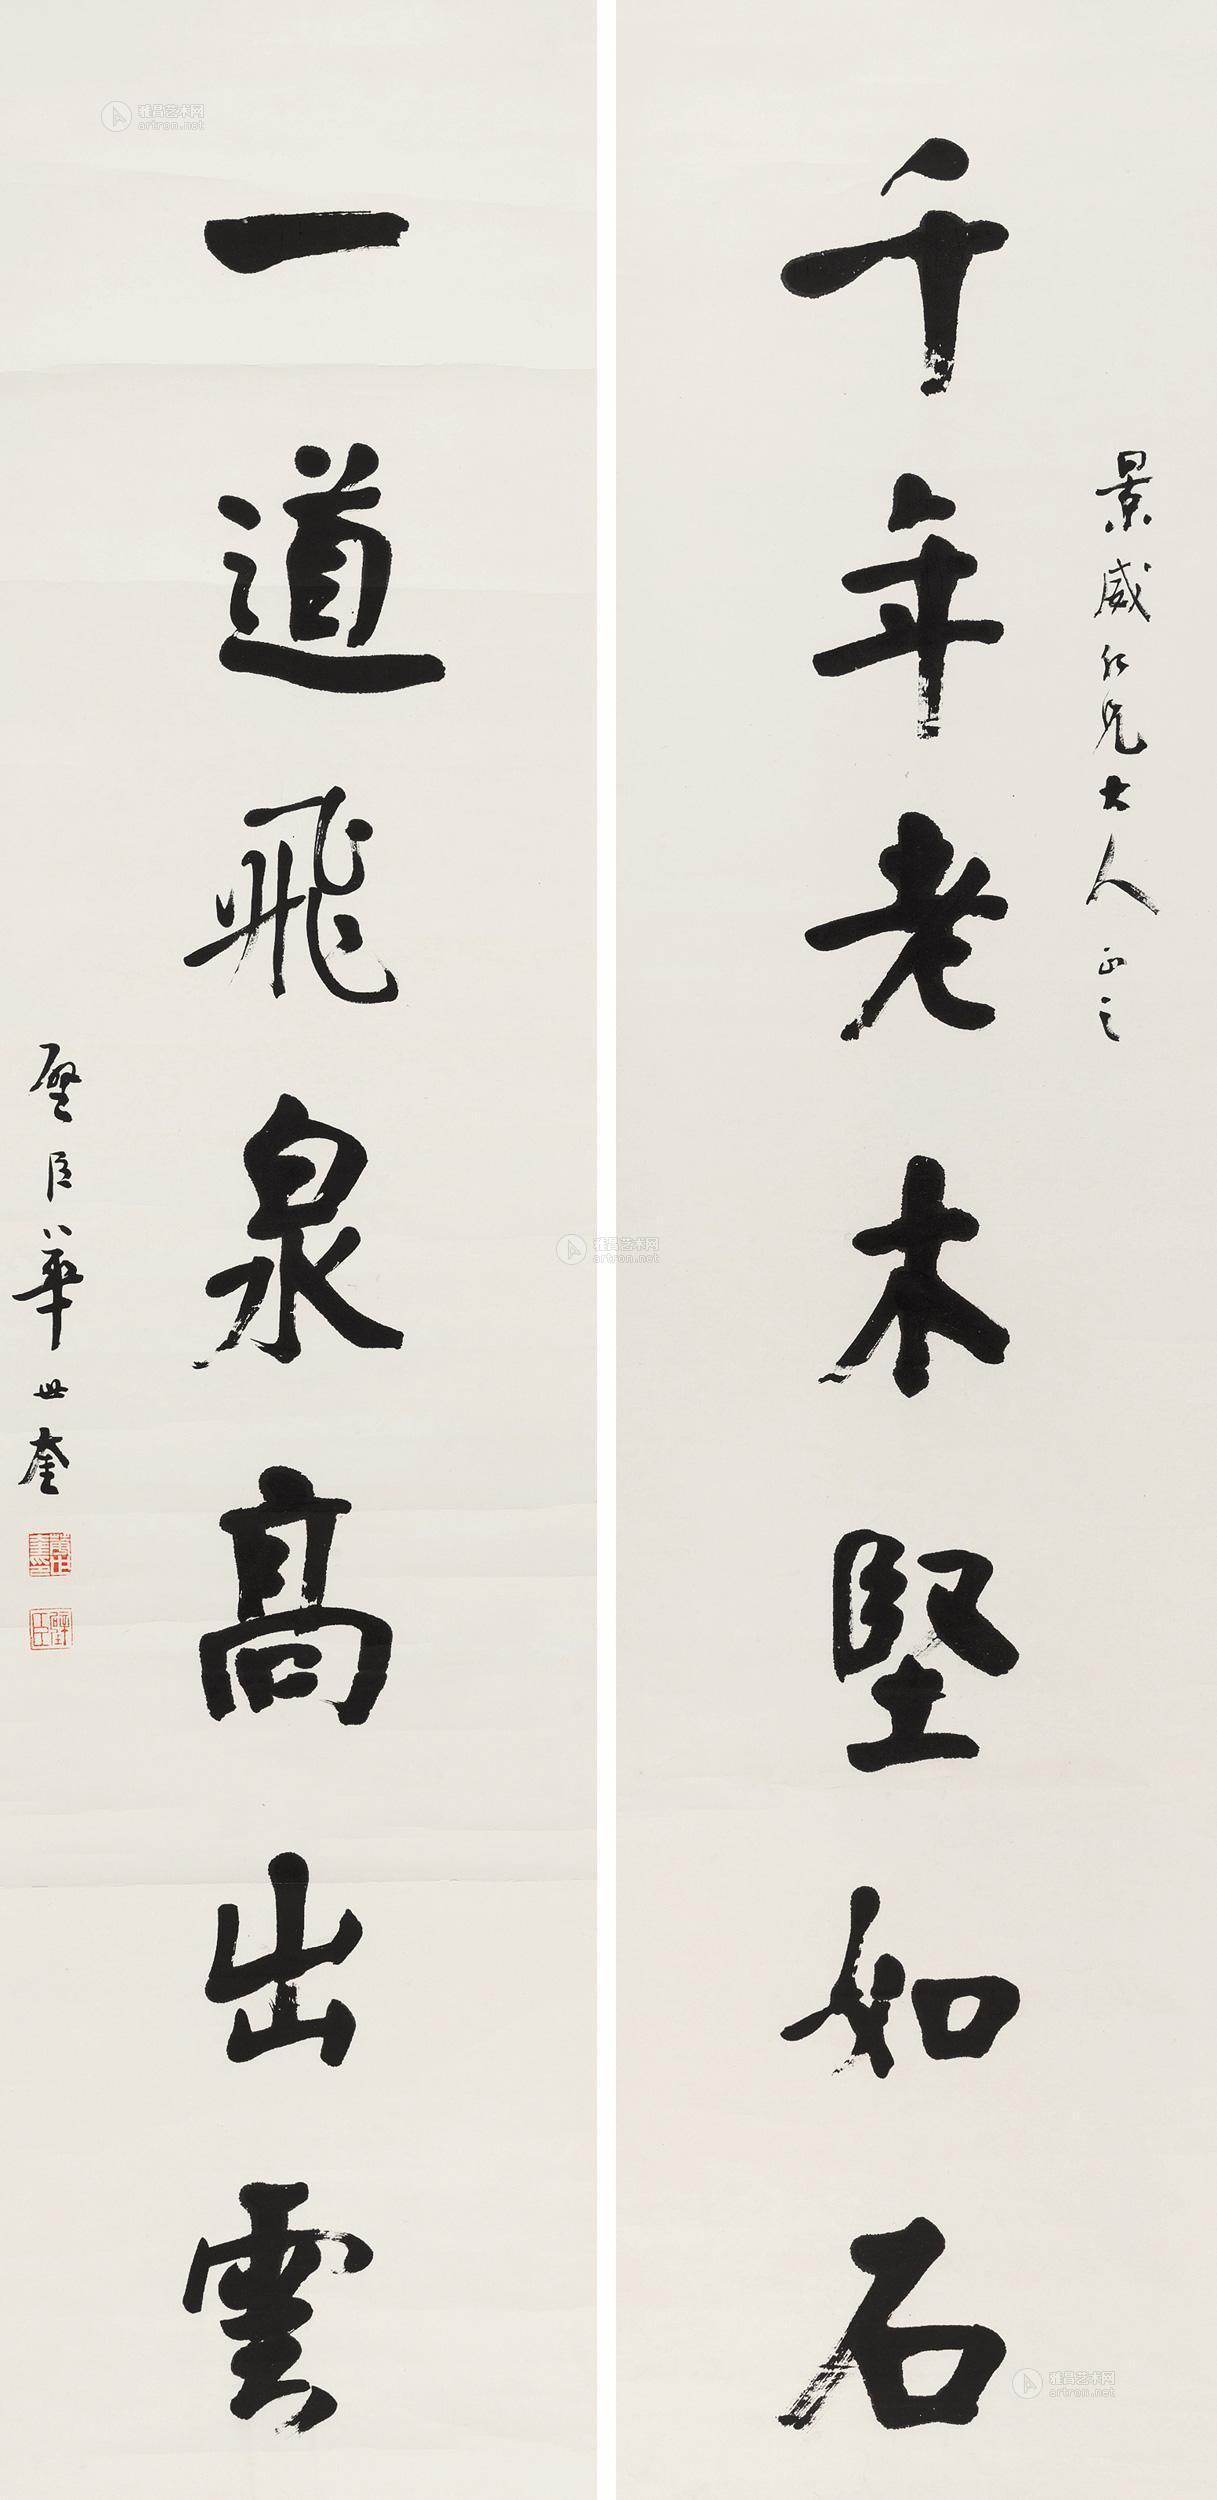 景威仁兄大人正之
千年老木堅如石
一道飛泉高出雲
壁臣華世奎
雅昌艺术网
artron.net
雅昌艺术网
artron.net
雅昌艺术网
artron.net